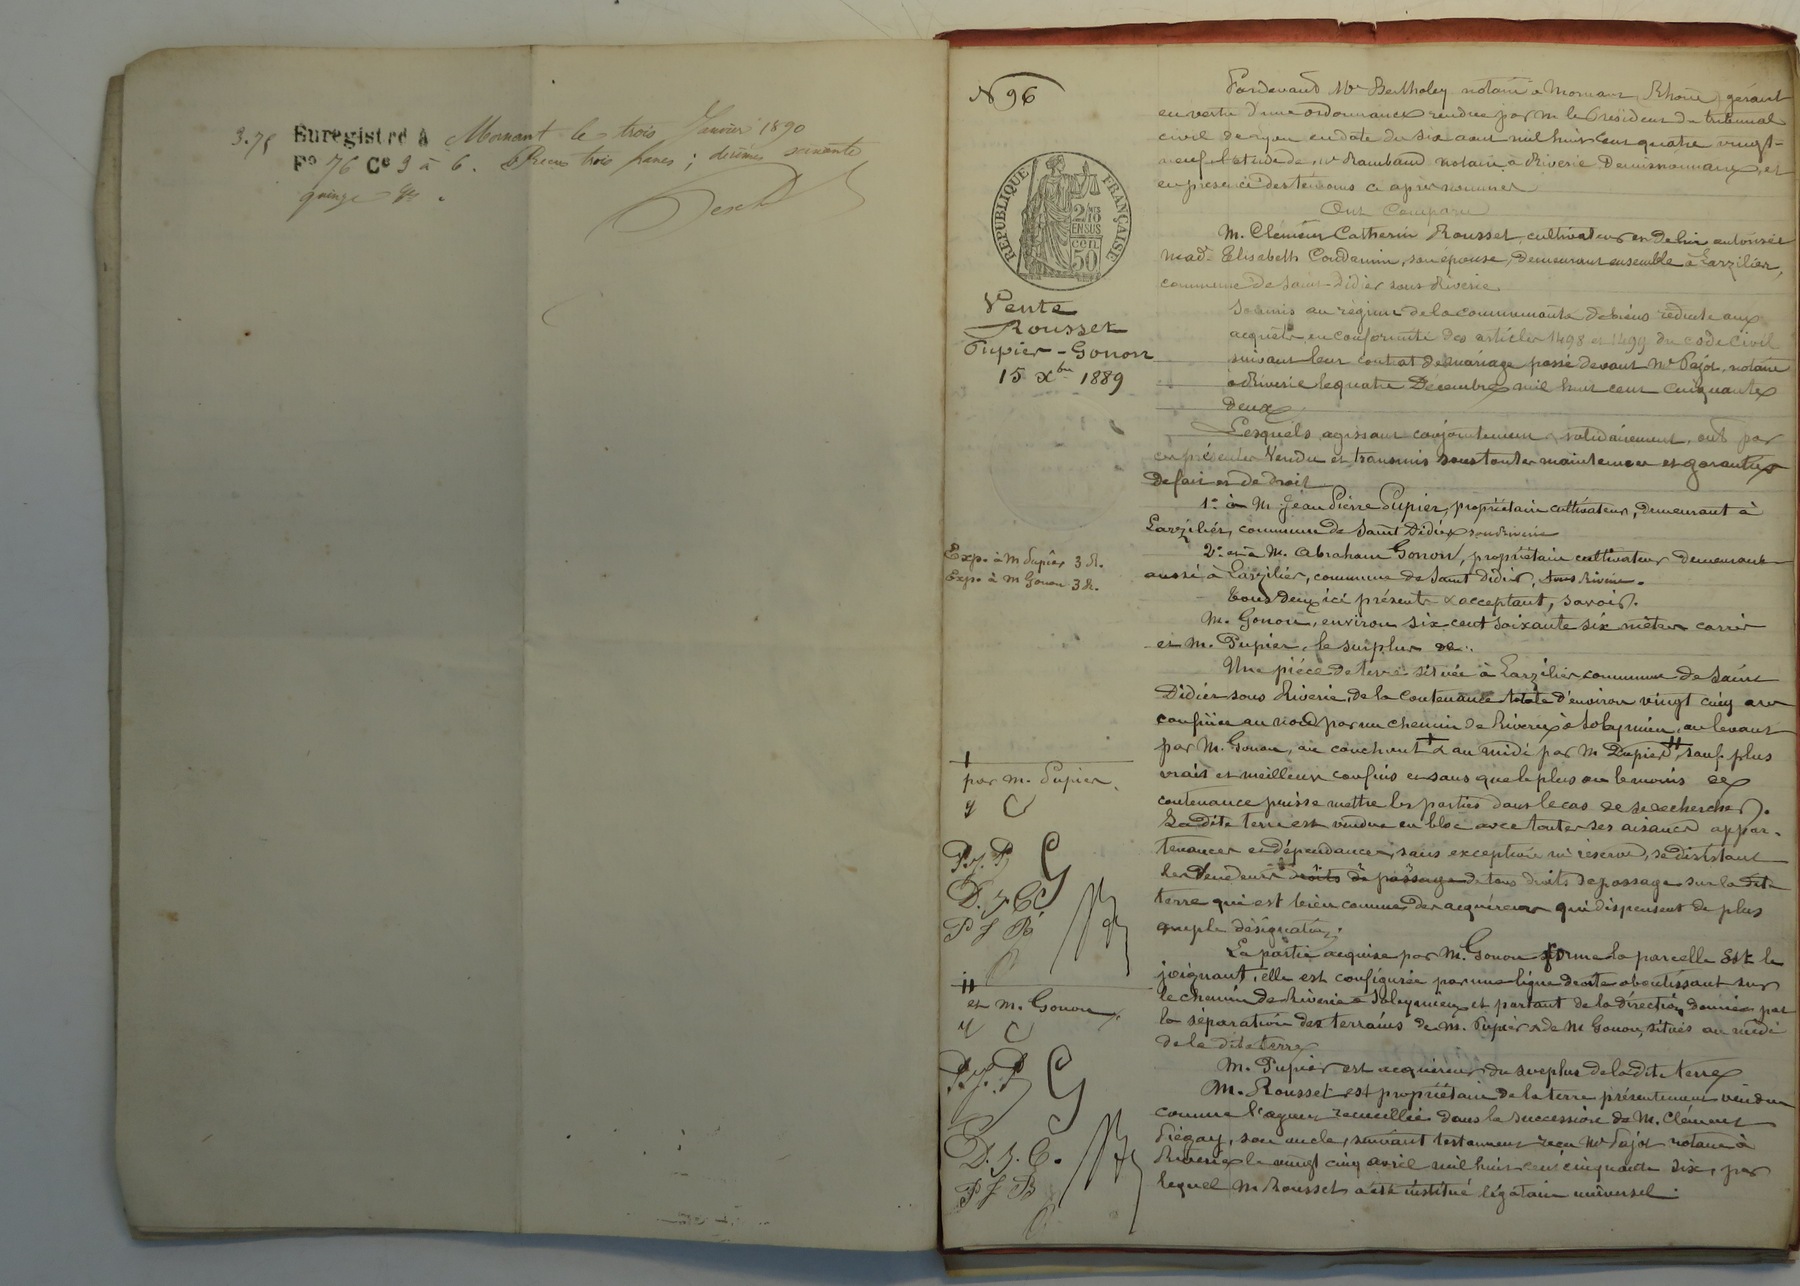 3.75 Enregistré à Mornant le trois Janvier 1890
F° 76 C° 3 à 6. Reçu trois francs ; décimes soixante
quinze
N 96
RÉPUBLIQUE FRANÇAISE
2/10 EN SUS
50 CEN
Vente
Rousset
Pupier - Gonon
15 Xbre 1889
Exp. à M Pupier 3 R.
Exp. à M Gonon 3 R.
Pardevant Me Bertholey notaire à Mornant, Rhône, gérant
en vertu d'une ordonnance rendue par M le Président du tribunal
civil de Lyon en date du six aout mil huit cent quatre vingt-
neuf l'étude de Me Rambaud notaire à Riverie Démissionnaire, et
en présence des témoins ci après nommés
Ont Comparu
M. Clément Catherin Rousset, cultivateur et de lui autorisée
Made Elisabeth Condamin, son épouse, demeurant ensemble à Larzilier,
commune de Saint-Didier sous Riverie.
Soumis au régime de la communauté de biens réduite aux
acquêts en conformité des articles 1498 et 1499 du code civil
suivant leur contrat de mariage passé devant Me Pajot, notaire
à Riverie le quatre Décembre mil huit cent cinquante
deux.
Lesquels agissant conjointement solidairement, ont par
ces présentes Vendu et transmis sous toutes maintenues et garanties
de fait et de droit
1° à M. Jean Pierre Pupier, propriétaire cultivateur, demeurant à
Larzilier, commune de Saint Didier sous Riverie
2° et à M. Abraham Gonon, propriétaire cultivateur demeurant
aussi à Larzilier, commune de Saint Didier, sous Riverie.
tous deux ici présents & acceptant, savoir.
M. Gonon, environ six cent soixante six mètres carrés
et M. Pupier, le surplus de..
Une pièce de terre située à Larzilier commune de Saint
Didier sous Riverie, de la contenance totale d'environ vingt cinq ares
confinée au nord par un chemin de Riverie à Soleymieu, au levant
par M. Gonon, au couchant & au midi par M Pupier, sauf plus
vrais et meilleurs confins et sans que le plus ou le moins de
contenance puisse mettre les parties dans le cas de se rechercher.
La dite terre est vendue en bloc avec toutes ses aisances appar-
tenances et dépendances, sans exception ni réserve, se désistant
les Vendeurs droits de passage de tous droits de passage sur la dite
terre qui est bien connue des acquéreurs qui dispensent de plus
ample désignation.
La partie acquise par M. Gonon forme la parcelle Est le
joignant, elle est configurée par une ligne droite aboutissant sur
le chemin de Riverie à Soleymieu et partant de la direction donnée par
la séparation des terrains de M. Pupier & de M Gonon, situés au midi
de la dite terre
M. Pupier est acquéreur du surplus de la dite terre
M. Rousset est propriétaire de la terre présentement vendue
comme l'ayant recueillie dans la succession de M. Clément
Piégay, son oncle, suivant testament reçu Me Pajot notaire à
Riverie le vingt cinq avril mil huit cent cinquante six, par
lequel M Rousset a été institué légataire universel.
par M. Pupier.
P. J. P
D. J. C
P J B
et M. Gonon
P. J. P
D. J. C.
P J B